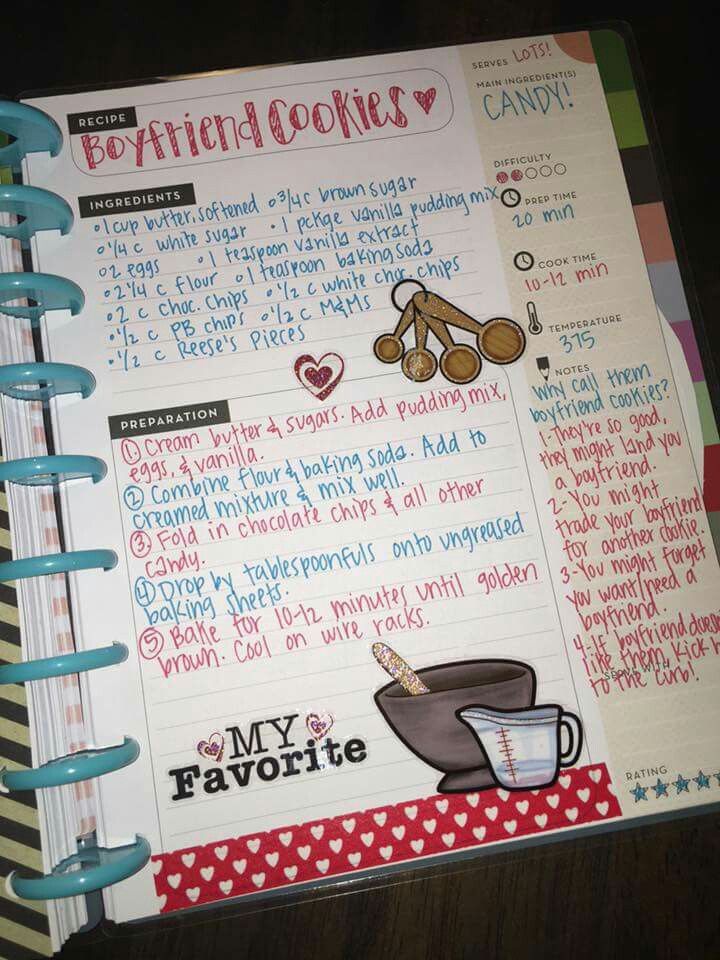 RECIPE
Boyfriend Cookies
SERVES LOTS!
MAIN INGREDIENT(S)
CANDY!
DIFFICULTY
PREP TIME
20 min
COOK TIME
10-12 min
TEMPERATURE
375
INGREDIENTS
• 1 cup butter, softened • 3/4 c brown sugar
• 1/4 c white sugar • 1 pckge vanilla pudding mix
• 2 eggs • 1 teaspoon vanilla extract
• 2 1/4 c flour • 1 teaspoon baking soda
• 2 c choc. chips • 1/2 c white choc. chips
• 1/2 c PB chips • 1/2 c M&Ms
• 1/2 c Reese's Pieces
PREPARATION
① Cream butter & sugars. Add pudding mix,
eggs, & vanilla.
② Combine flour & baking soda. Add to
creamed mixture & mix well.
③ Fold in chocolate chips & all other
candy.
④ Drop by tablespoonfuls onto ungreased
baking sheets.
⑤ Bake for 10-12 minutes until golden
brown. Cool on wire racks.
NOTES
Why call them
boyfriend cookies?
1- They're so good,
they might land you
a boyfriend.
2- You might
trade your boyfriend
for another cookie.
3- You might forget
you want/need a
boyfriend.
4- if boyfriend
like them, kick
to the curb!
MY
Favorite
RATING